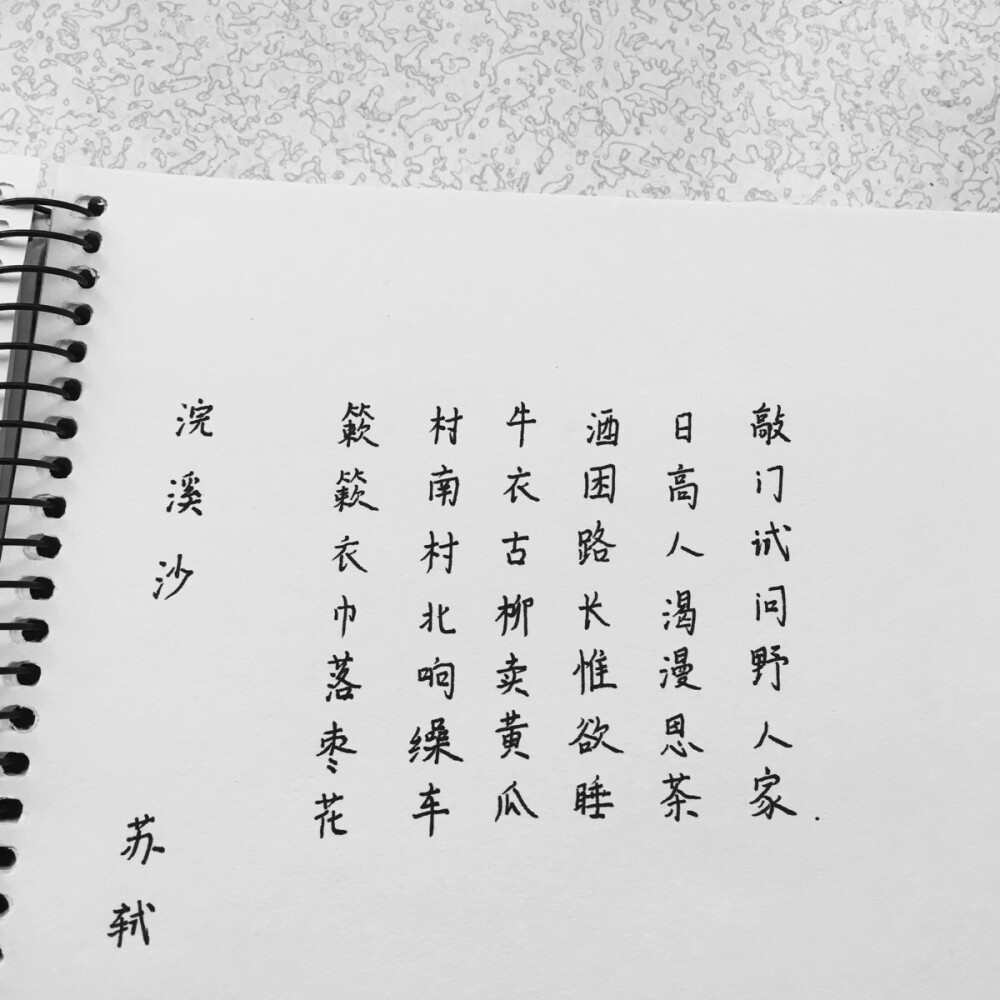 浣溪沙
苏轼
簌簌衣巾落枣花
村南村北响缲车
牛衣古柳卖黄瓜
酒困路长惟欲睡
日高人渴漫思茶
敲门试问野人家.